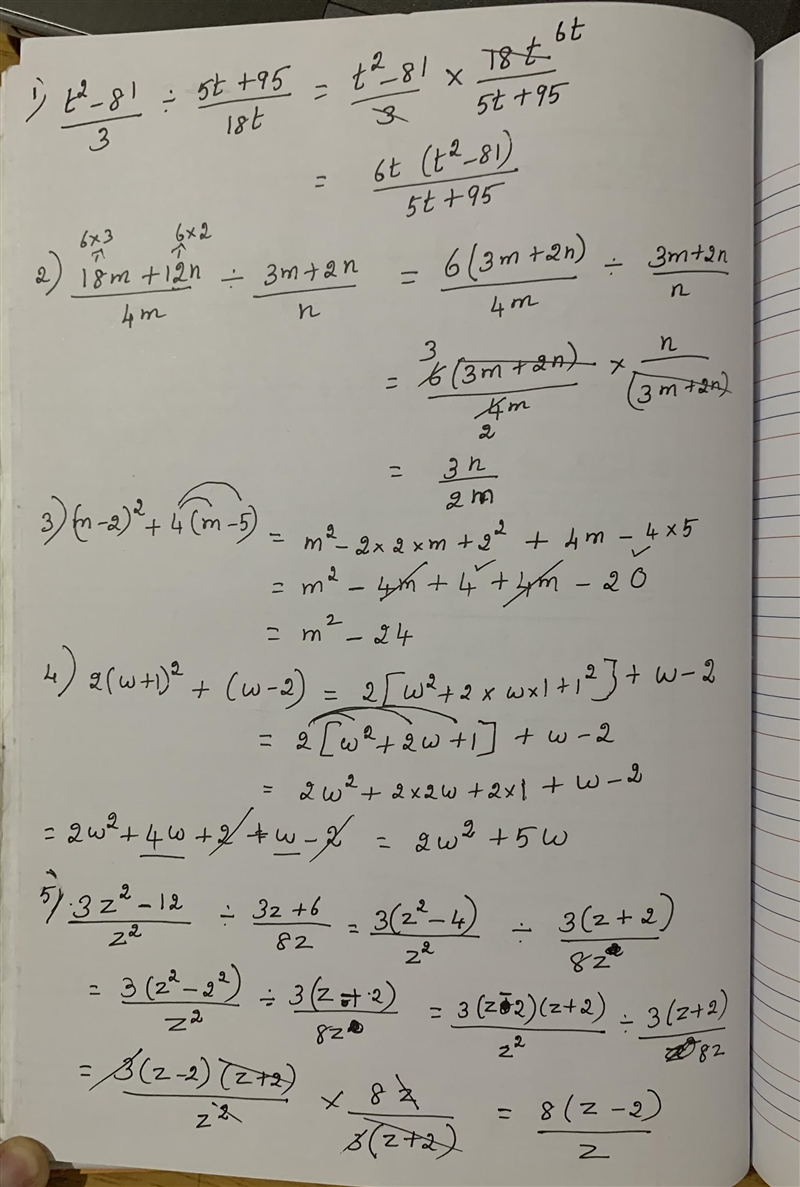 1) (t² - 81)/3 ÷ (5t + 95)/18t = (t² - 81)/3 × 18t/(5t + 95) 6t
= 6t (t² - 81)/(5t + 95)
6×3 6×2
2) (18m + 12n)/4m ÷ (3m + 2n)/n = 6(3m + 2n)/4m ÷ (3m + 2n)/n
= 3 6(3m + 2n)/4m 2 × n/(3m + 2n)
= 3n/2m
3) (m - 2)² + 4(m - 5) = m² - 2 × 2 × m + 2² + 4m - 4 × 5
= m² - 4m + 4 + 4m - 20
= m² - 24
4) 2(w + 1)² + (w - 2) = 2[w² + 2 × w × 1 + 1²] + w - 2
= 2[w² + 2w + 1] + w - 2
= 2w² + 2 × 2w + 2 × 1 + w - 2
= 2w² + 4w + 2 + w - 2 = 2w² + 5w
5) (3z² - 12)/z² ÷ (3z + 6)/8z = 3(z² - 4)/z² ÷ 3(z + 2)/8z
= 3(z² - 2²)/z² ÷ 3(z + 2)/8z = 3(z - 2)(z + 2)/z² ÷ 3(z + 2)/8z
= 3(z - 2)(z + 2)/z² × 8z/3(z + 2) = 8(z - 2)/z